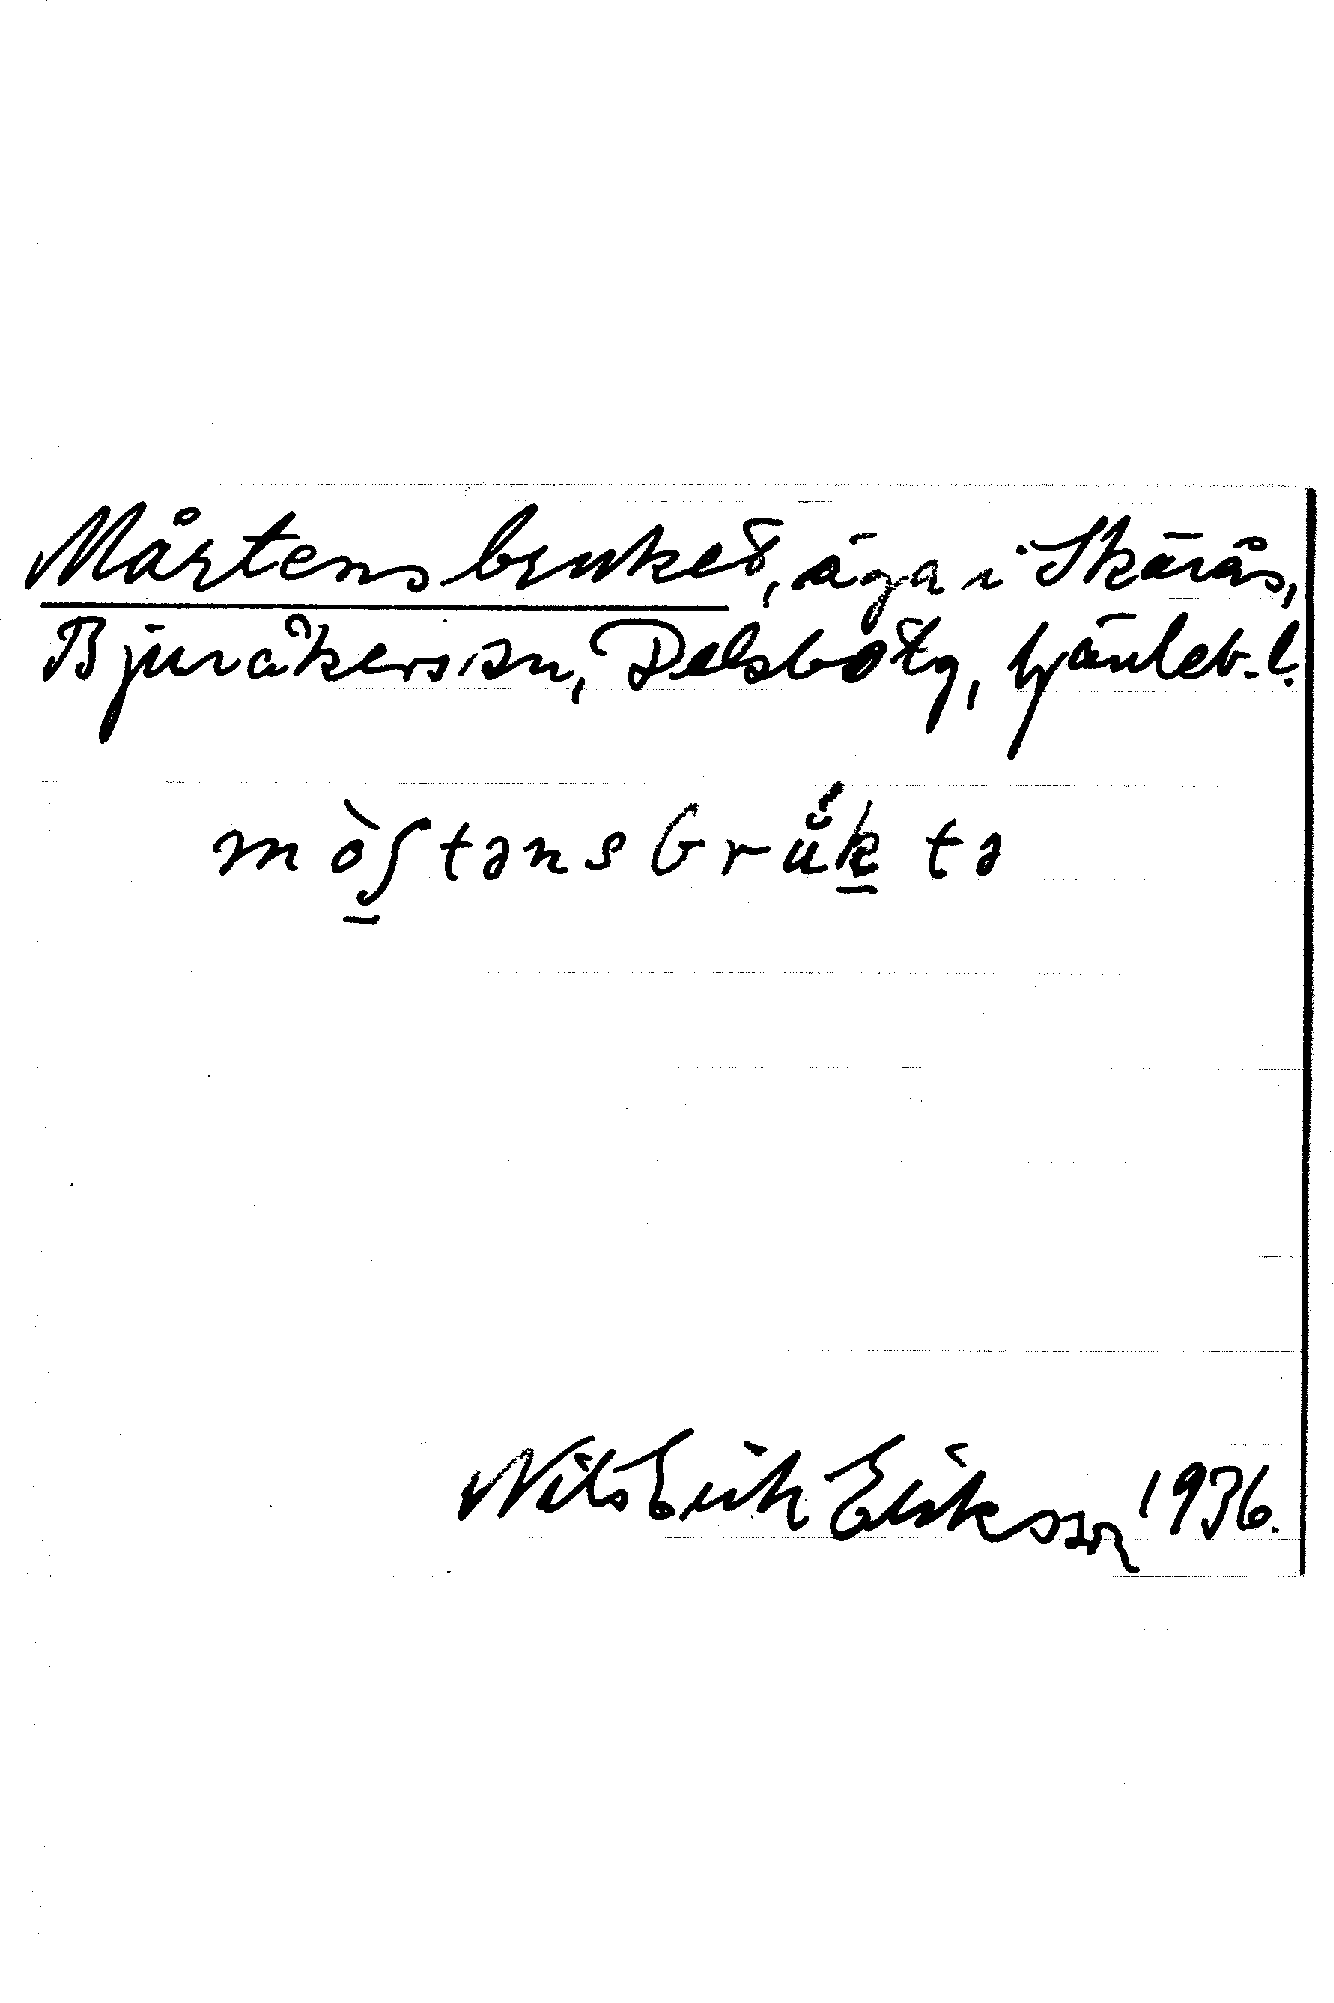 Mårtensbruket, äga i Skärås,
Bjuråkers sn, Delsbo tg, Gävleb. l.
mò̱ʃtənsbrúḵtə
Nils Erik Erikson 1936.